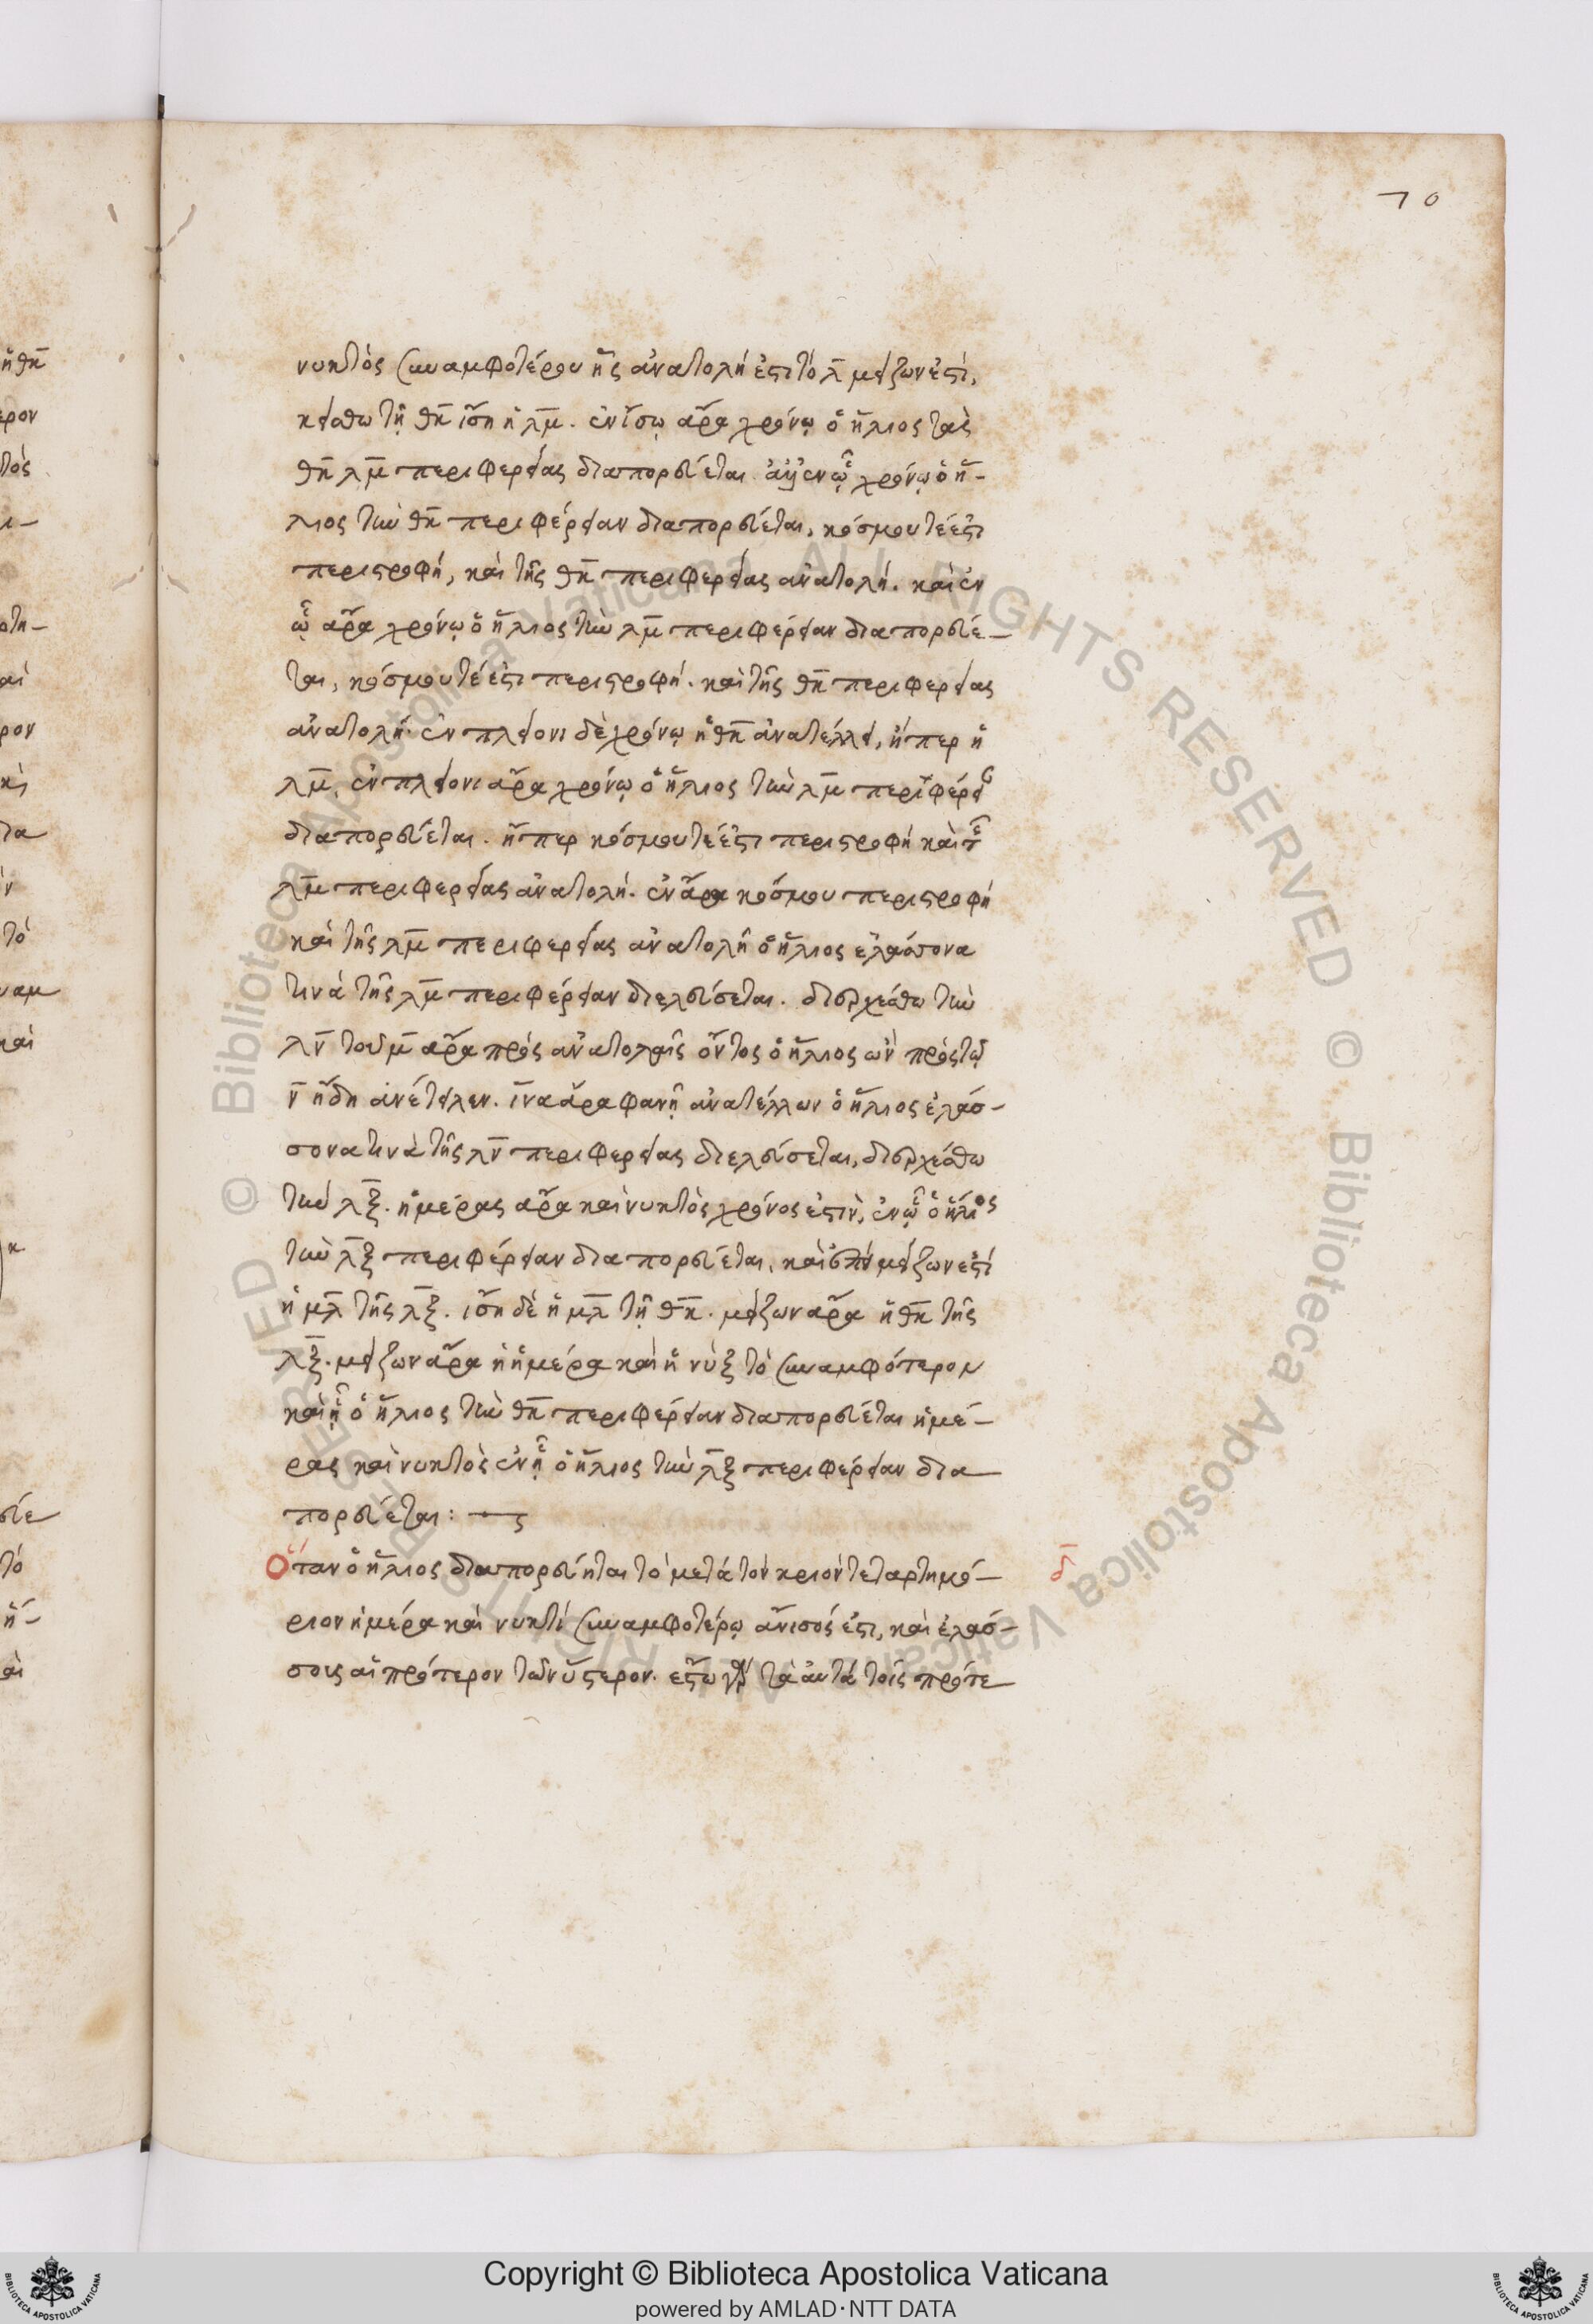 70
νυκτὸς συναμφοτέρου ἧς ἀνατολή ἐστι τὸ λ̅ μείζων ἐστί,
κείσθω τῇ θ̅κ̅ ἴση ἡ λ̅μ̅. ἐν ἴσῳ ἄρα χρόνῳ ὁ ἥλιος τὰς
θ̅κ̅ λ̅μ̅ περιφερείας διαπορεύεται. ἐν ᾧ χρόνῳ ὁ ἥ-
λιος τὴν θ̅κ̅ περιφέρειαν διαπορεύεται, κόσμου τέ ἐστι
περιστροφή, καὶ τῆς θ̅κ̅ περιφερείας ἀνατολή. καὶ ἐν
ᾧ ἄρα χρόνῳ ὁ ἥλιος τὴν λ̅μ̅ περιφέρειαν διαπορεύε-
ται, κόσμου τέ ἐστι περιστροφή. καὶ τῆς θ̅κ̅ περιφερείας
ἀνατολή. ἐν πλείονι δὲ χρόνῳ ἡ θ̅κ̅ ἀνατέλλει, ἤπερ ἡ
λ̅μ̅. ἐν πλείονι ἄρα χρόνῳ ὁ ἥλιος τὴν λ̅μ̅ περιφέρει
διαπορεύεται. ἤπερ κόσμου τέ ἐστι περιστροφή καὶ τ
λ̅μ̅ περιφερείας ἀνατολή. ἐν ἄρα κόσμου περιστροφῇ
καὶ τῆς λ̅μ̅ περιφερείας ἀνατολῇ ὁ ἥλιος ἐλάσσονα
τινὰ τῆς λ̅μ̅ περιφέρειαν διελεύσεται. διερχέσθω τὴν
λ̅ν̅ τοῦ μ̅ ἄρα πρὸς ἀνατολαῖς ὄντος ὁ ἥλιος ὢν πρὸς τῷ
ν̅ ἤδη ἀνέτειλεν. ἵνα ἄρα φανῇ ἀνατέλλων ὁ ἥλιος ἐλάσ-
σονα τινὰ τῆς λ̅ν̅ περιφερείας διελεύσεται, διερχέσθω
τὴν λ̅ξ̅. ἡμέρας ἄρα καὶ νυκτὸς χρόνος ἐστὶν, ἐν ᾧ ὁ ἥλιος
τὴν λ̅ξ̅ περιφέρειαν διαπορεύεται. καὶ ἐπεὶ μείζων ἐστί
ἡ μ̅λ̅ τῆς λ̅ξ̅. ἴση δὲ ἡ μ̅λ̅ τῇ θ̅κ̅. μείζων ἄρα ἡ θ̅κ̅ τῆς
λ̅ξ̅. μείζων ἄρα ἡ ἡμέρα καὶ ἡ νὺξ τὸ συναμφότερον
καὶ ᾗ ὁ ἥλιος τὴν θ̅κ̅ περιφέρειαν διαπορεύεται ἡμέ-
ρας καὶ νυκτὸς ἐν ᾗ ὁ ἥλιος τὴν λ̅ξ̅ περιφέρειαν δια
πορεύεται:
Ὅταν ὁ ἥλιος διαπορεύηται τὸ μετὰ τὸν κριὸν τεταρτημό- δ̅
ριον ἡμέρα καὶ νυκτὶ συναμφοτέρῳ ἄνισός ἐστι, καὶ ἐλάσ-
σους αἱ πρότερον τῶν ὕστερον. ἔστω γὰρ τὰ αὐτὰ τοῖς πρότε